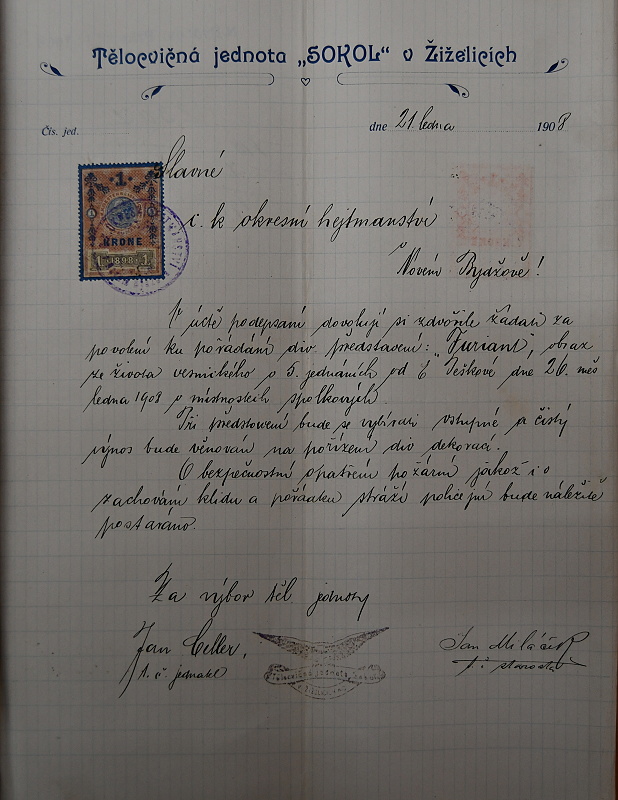 Tělocvičná jednota „SOKOL“ v Žiželicích
Čís. jed.
dne 21. ledna 1908
Slavné
1
KRONE
1 1898 1
c. k. okresní hejtmanství
v Novém Bydžově!
V úctě podepsaní dovolují si zdvořile žádati za
povolení ku pořádání div. představení: „Furiant“, obraz
ze života vesnického o 5. jednáních od E. Peškové dne 26. měs
ledna 1908 v místnostech spolkových.
Při představení bude se vybírati vstupné a čistý
výnos bude věnován na pořízení div dekorací.
O bezpečnostní opatření požární jakož i o
zachování klidu a pořádku stráží policejní bude náležitě
postaráno.
Za výbor těl jednoty
Jan Celler,
t. č. jednatel
Tělocvičná jednota Sokol
Jan Miláček
t. č. starosta